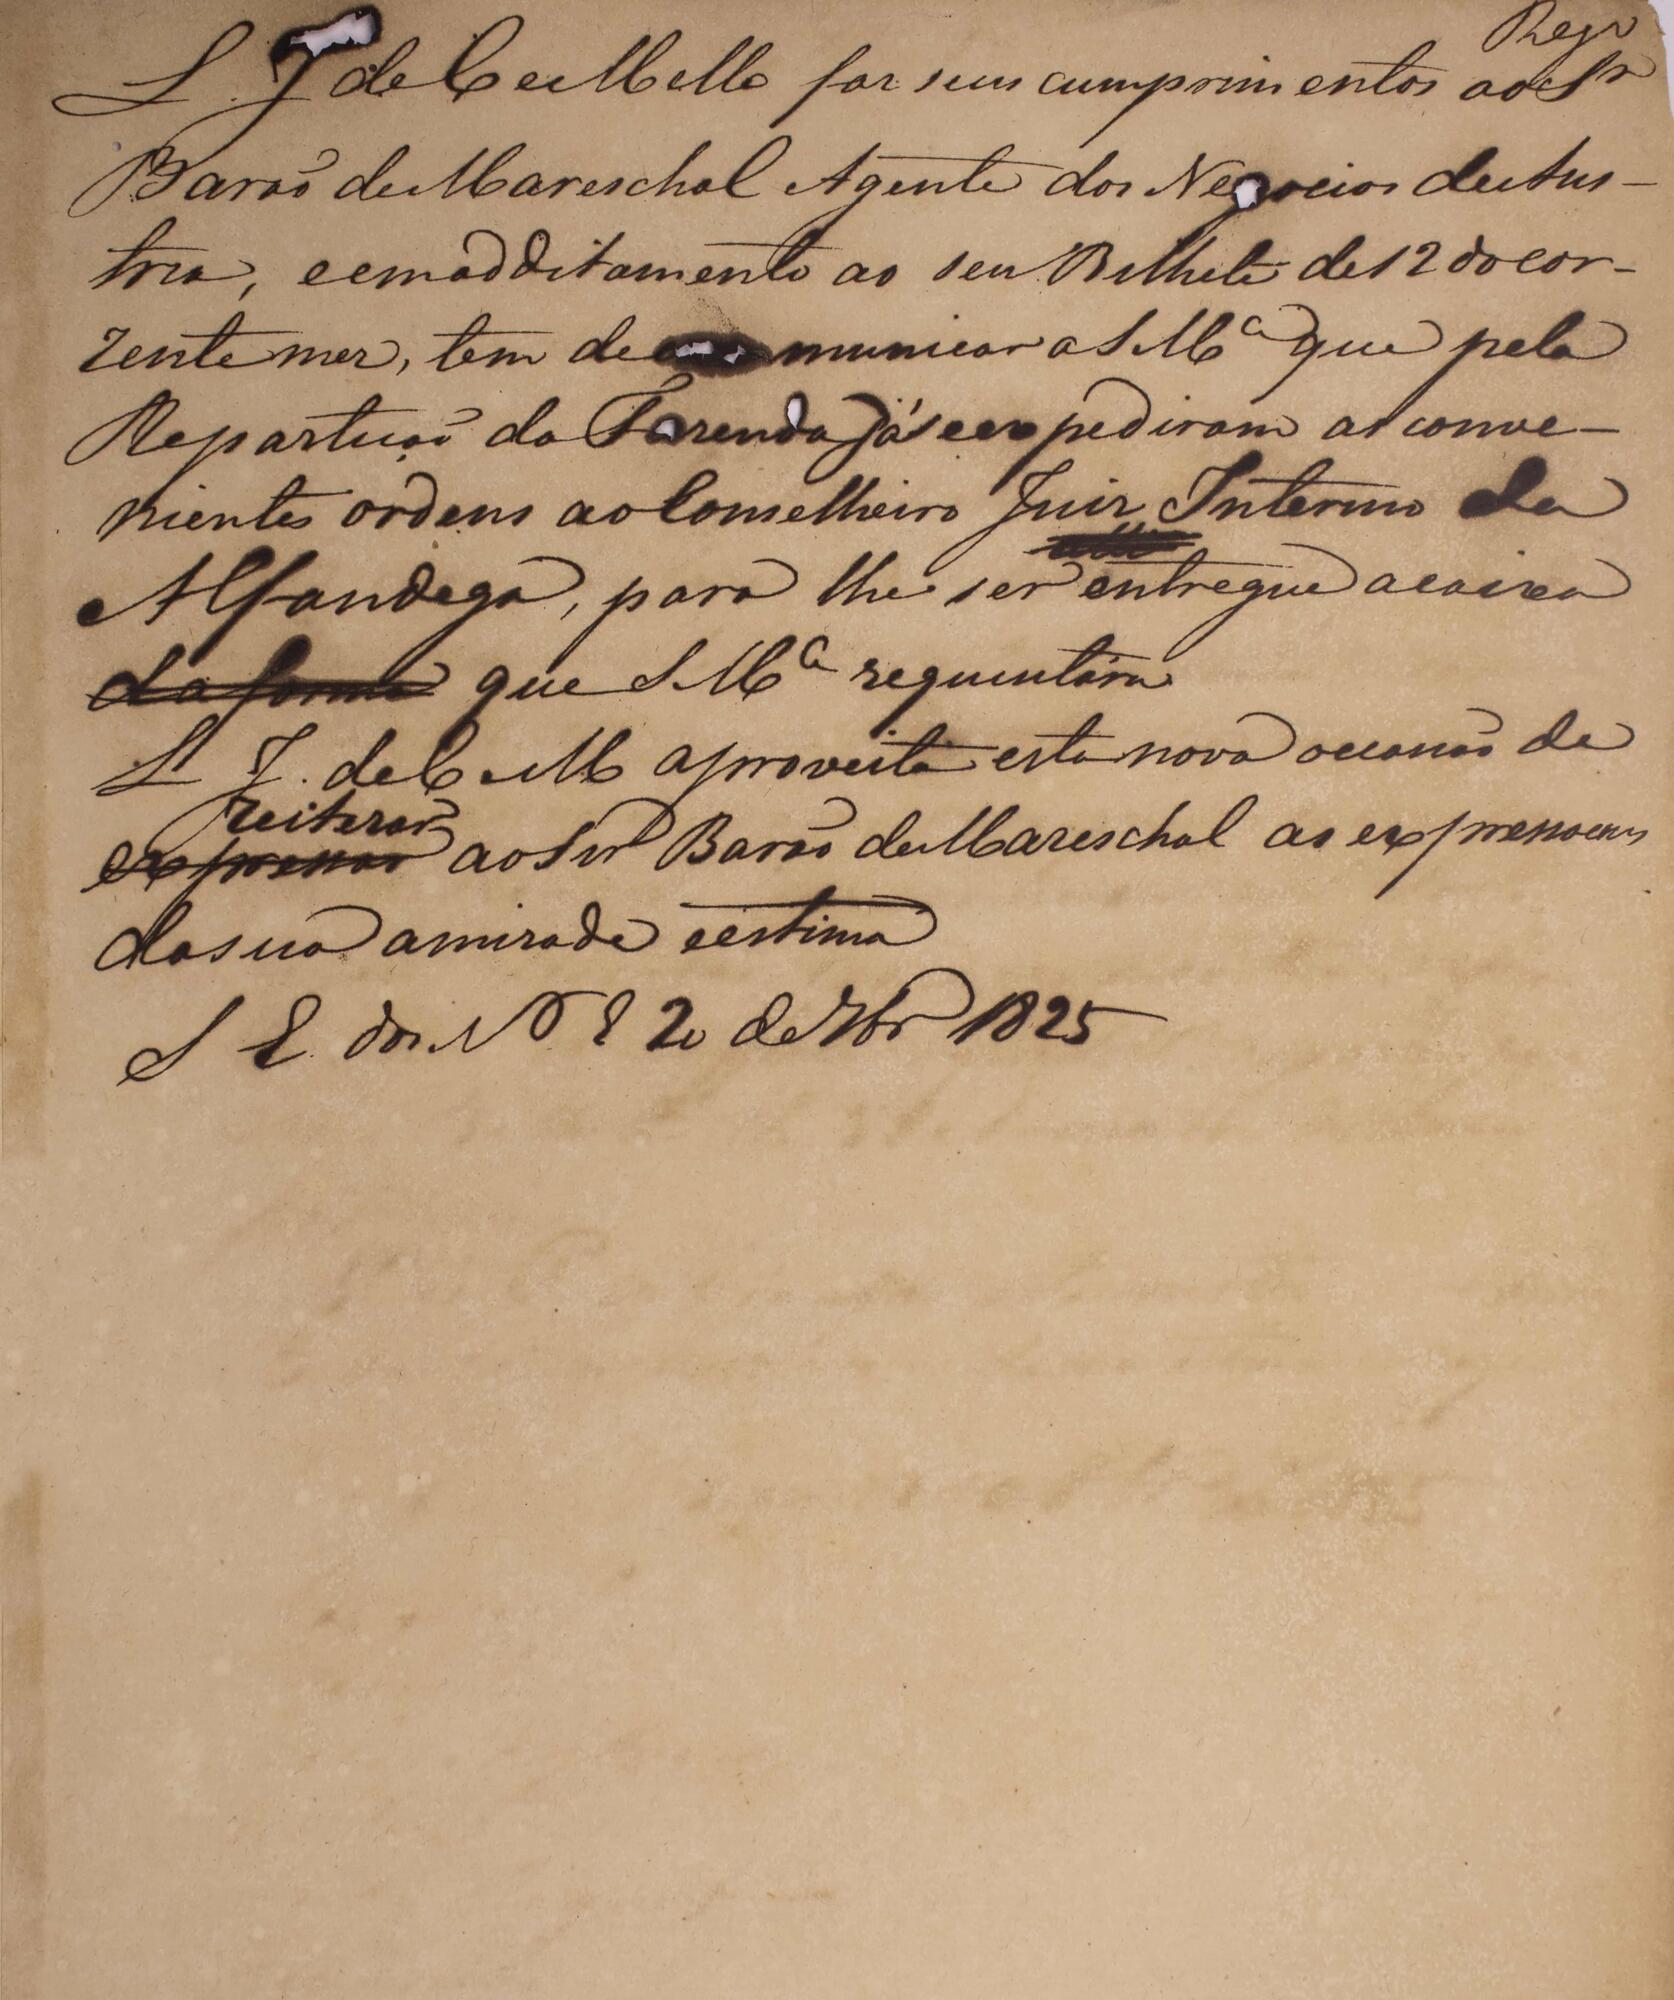 Regº
L. J de C e Mello faz seus cumprimentos ao Sr
Barão de Mareschal Agente dos Negocios de Aus-
tria, e em additamento ao seu Bilhete de 12 do cor-
rente mez, tem de communicar a S Mce que pela
Repartição da Fazenda já se expediram as conve-
nientes ordens ao Conselheiro Juiz Interino da
Alfandega, para lhe ser entregue a caixa
da forma que S Mce requisitára
L J. de C e M aproveita esta nova occasião de
reiterar
expressar ao Snr Barão de Mareschal as expressoens
da sua amizade e estima
S E. dos N E 20 de 7br 1825